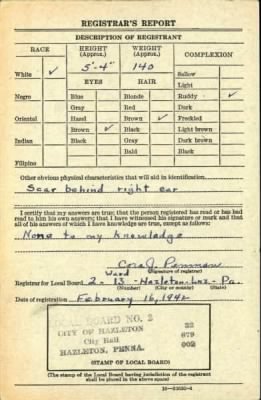 REGISTRAR'S REPORT
DESCRIPTION OF REGISTRANT
RACE HEIGHT (Approx.) WEIGHT (Approx.) COMPLEXION
White ✓ 5'-4" 140 Sallow
Light
EYES HAIR Ruddy ✓
Negro Blue Blonde
Gray Red Dark
Oriental Hazel Brown ✓ Freckled
Brown ✓ Black Light brown
Indian Black Gray Dark brown
Bald Black
Filipino
Other obvious physical characteristics that will aid in identification
Scar behind right ear
I certify that my answers are true; that the person registered has read or has had
read to him his own answers; that I have witnessed his signature or mark and that
all of his answers of which I have knowledge are true, except as follows:
None to my knowledge
Cora J.
Ward (Signature of registrar)
Registrar for Local Board 2 - 13 - Hazleton - Luz - Pa.
(Number) (City or county) (State)
Date of registration February 16, 1942
LOCAL BOARD NO. 2 32
CITY OF HAZLETON 079
City Hall 002
HAZLETON, PENNA.
(STAMP OF LOCAL BOARD)
(The stamp of the Local Board having jurisdiction of the registrant
shall be placed in the above space)